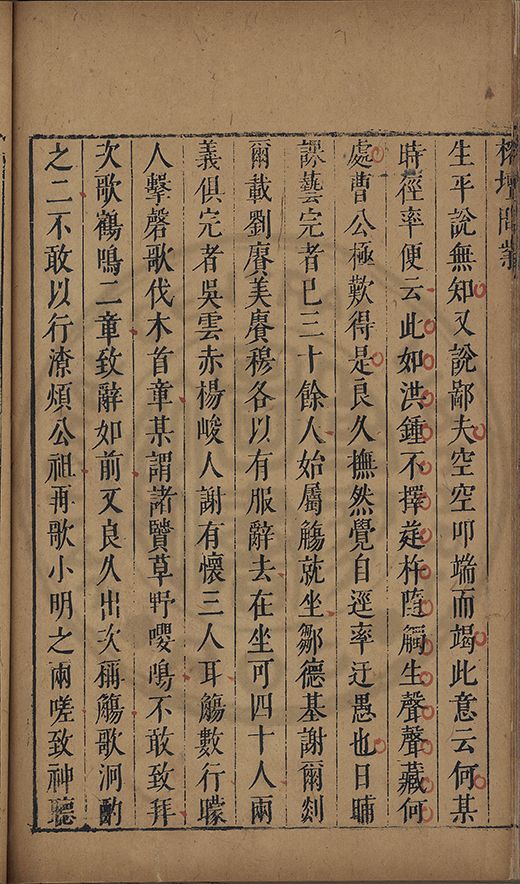 榕壇問業
生平說無知又說鄙夫空空叩端而竭此意云何某
時徑率便云此如洪鍾不擇莛杵隨觸生聲聲藏何
處曹公極歎得是良久撫然覺自逕率迂愚也日晡
課藝完者已三十餘人始屬觴就坐鄒德基謝爾剡
爾載劉賡美賡穆各以有服辭去在坐可四十人兩
義俱完者吳雲赤楊峻人謝有懷三人耳觴數行矇
人擊磬歌伐木首章某謂諸贒草野嚶鳴不敢致拜
次歌鶴鳴二章致辭如前又良久出次稱觴歌泂酌
之二不敢以行潦煩公祖再歌小明之兩嗟致神聽